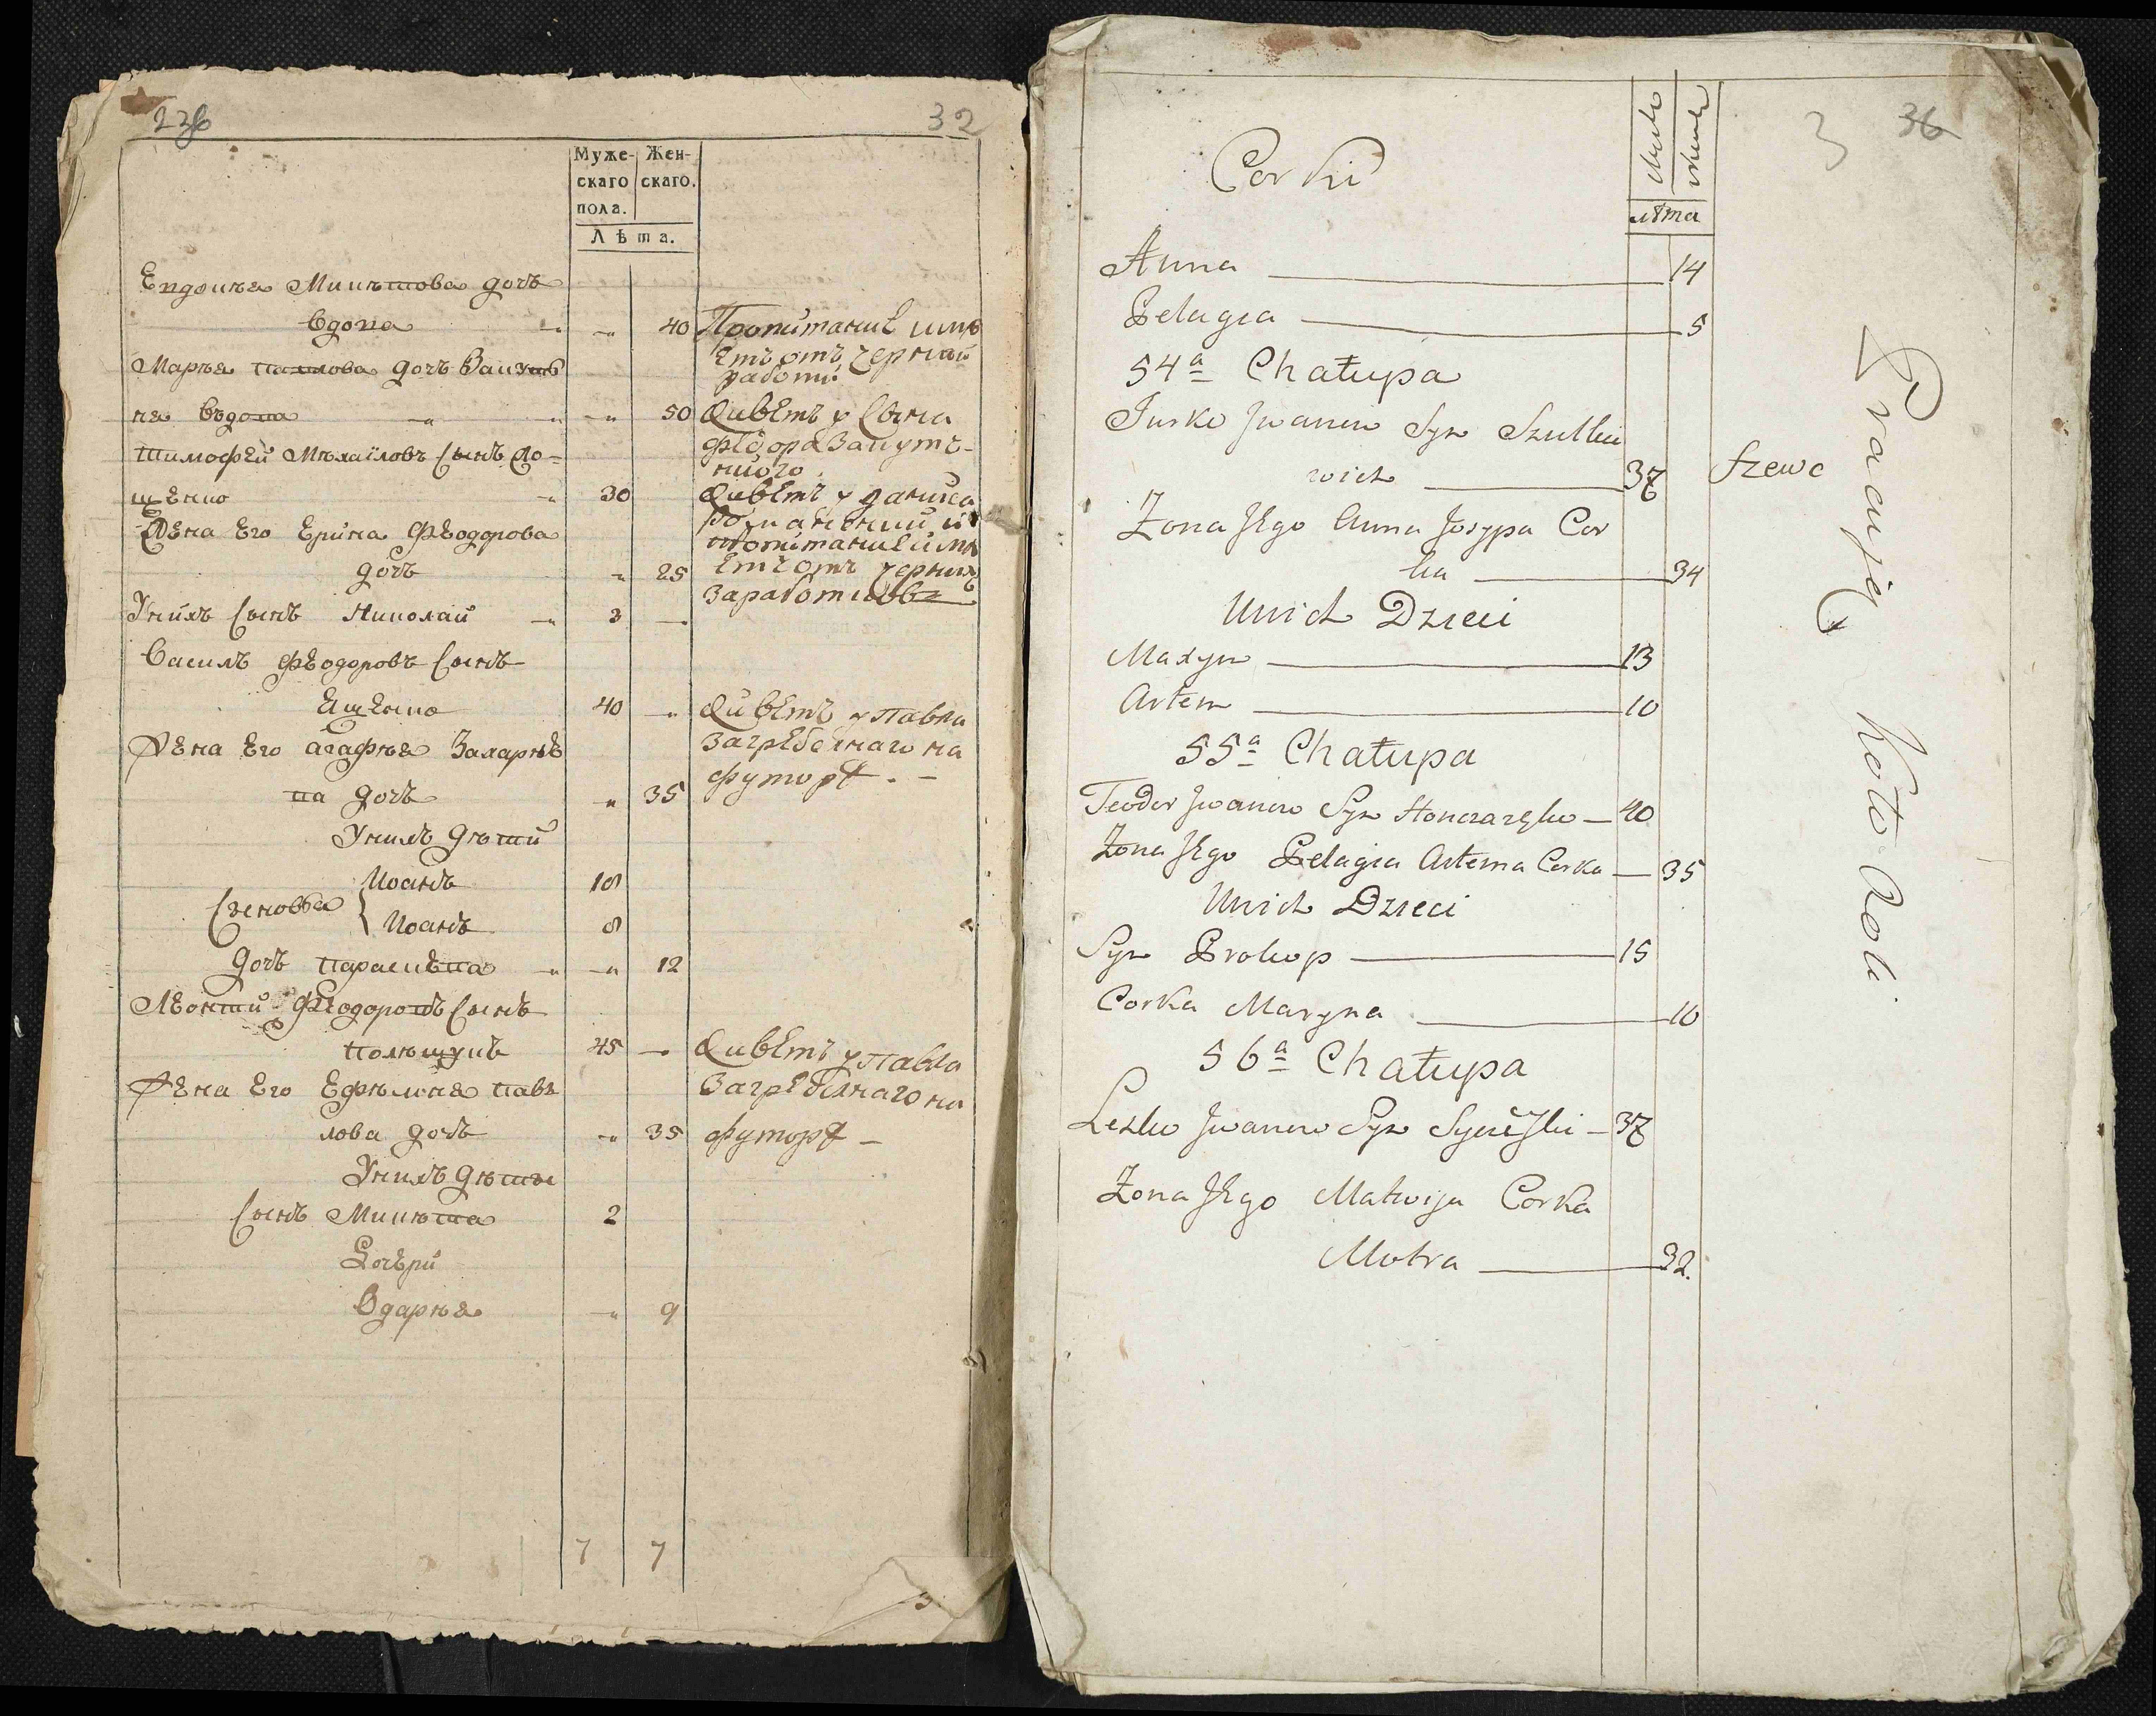 236
32
Муже-
скаго
пола.
Жен-
скаго.
Лѣта.
Евдокъя Микитова дочъ
вдова " " 40
Пропитание имѣ
етъ отъ черной
работи
Маръя Павлова дочъ
на въдова " " 50
Живетъ у Сына
Феодора
Тимофей Михайловъ Сынъ
щенко " 30
Живетъ у
пропитание имѣ
етъ отъ черних
заработковъ
Жена Его Ерина Феодорова
дочъ " 25
У них Сынъ Николай " 3
Василъ Феодоровъ Сынъ
Ященко 40 "
Живетъ у Павла
Загребелнаго на
футорѣ. -
Жена Его Агафъя Захаръе
ва дочъ " 35
У нихъ дѣтей
Сыновъя { Иоанъ 18
Иоанъ 8
дочъ Параскева " " 12
Леонтий Феодоровъ Сынъ
Полѣщукъ 45
Живетъ у Павла
Загребелнаго на
футорѣ -
Жена Его Ефимия Пав
лова дочъ " 35
У нихъ дѣти
Сынъ Микита 2
Дочери
Одаръя " 9
7 7
3 36
Corki
лѣта
Anna 14
Pelagia 5
54a Chałupa
Jurko Jwanow Syn Szulke
wich 37 Szewc
Żona Jego Anna Josypa Cor
ka 34
Unich Dzieci
Maxym 13
Artem 10
55a Chałupa
Teodor Jwanow Syn Honczarzko 40
Żona Jego Pelagia Artema Corka 35
Unich Dzieci
Syn Prokop 15
Corka Maryna 10
56a Chałupa
Lesko Jwanow Syn 37
Żona Jego Matwija Corka
Motra 32.
Pracują Koło Roli.